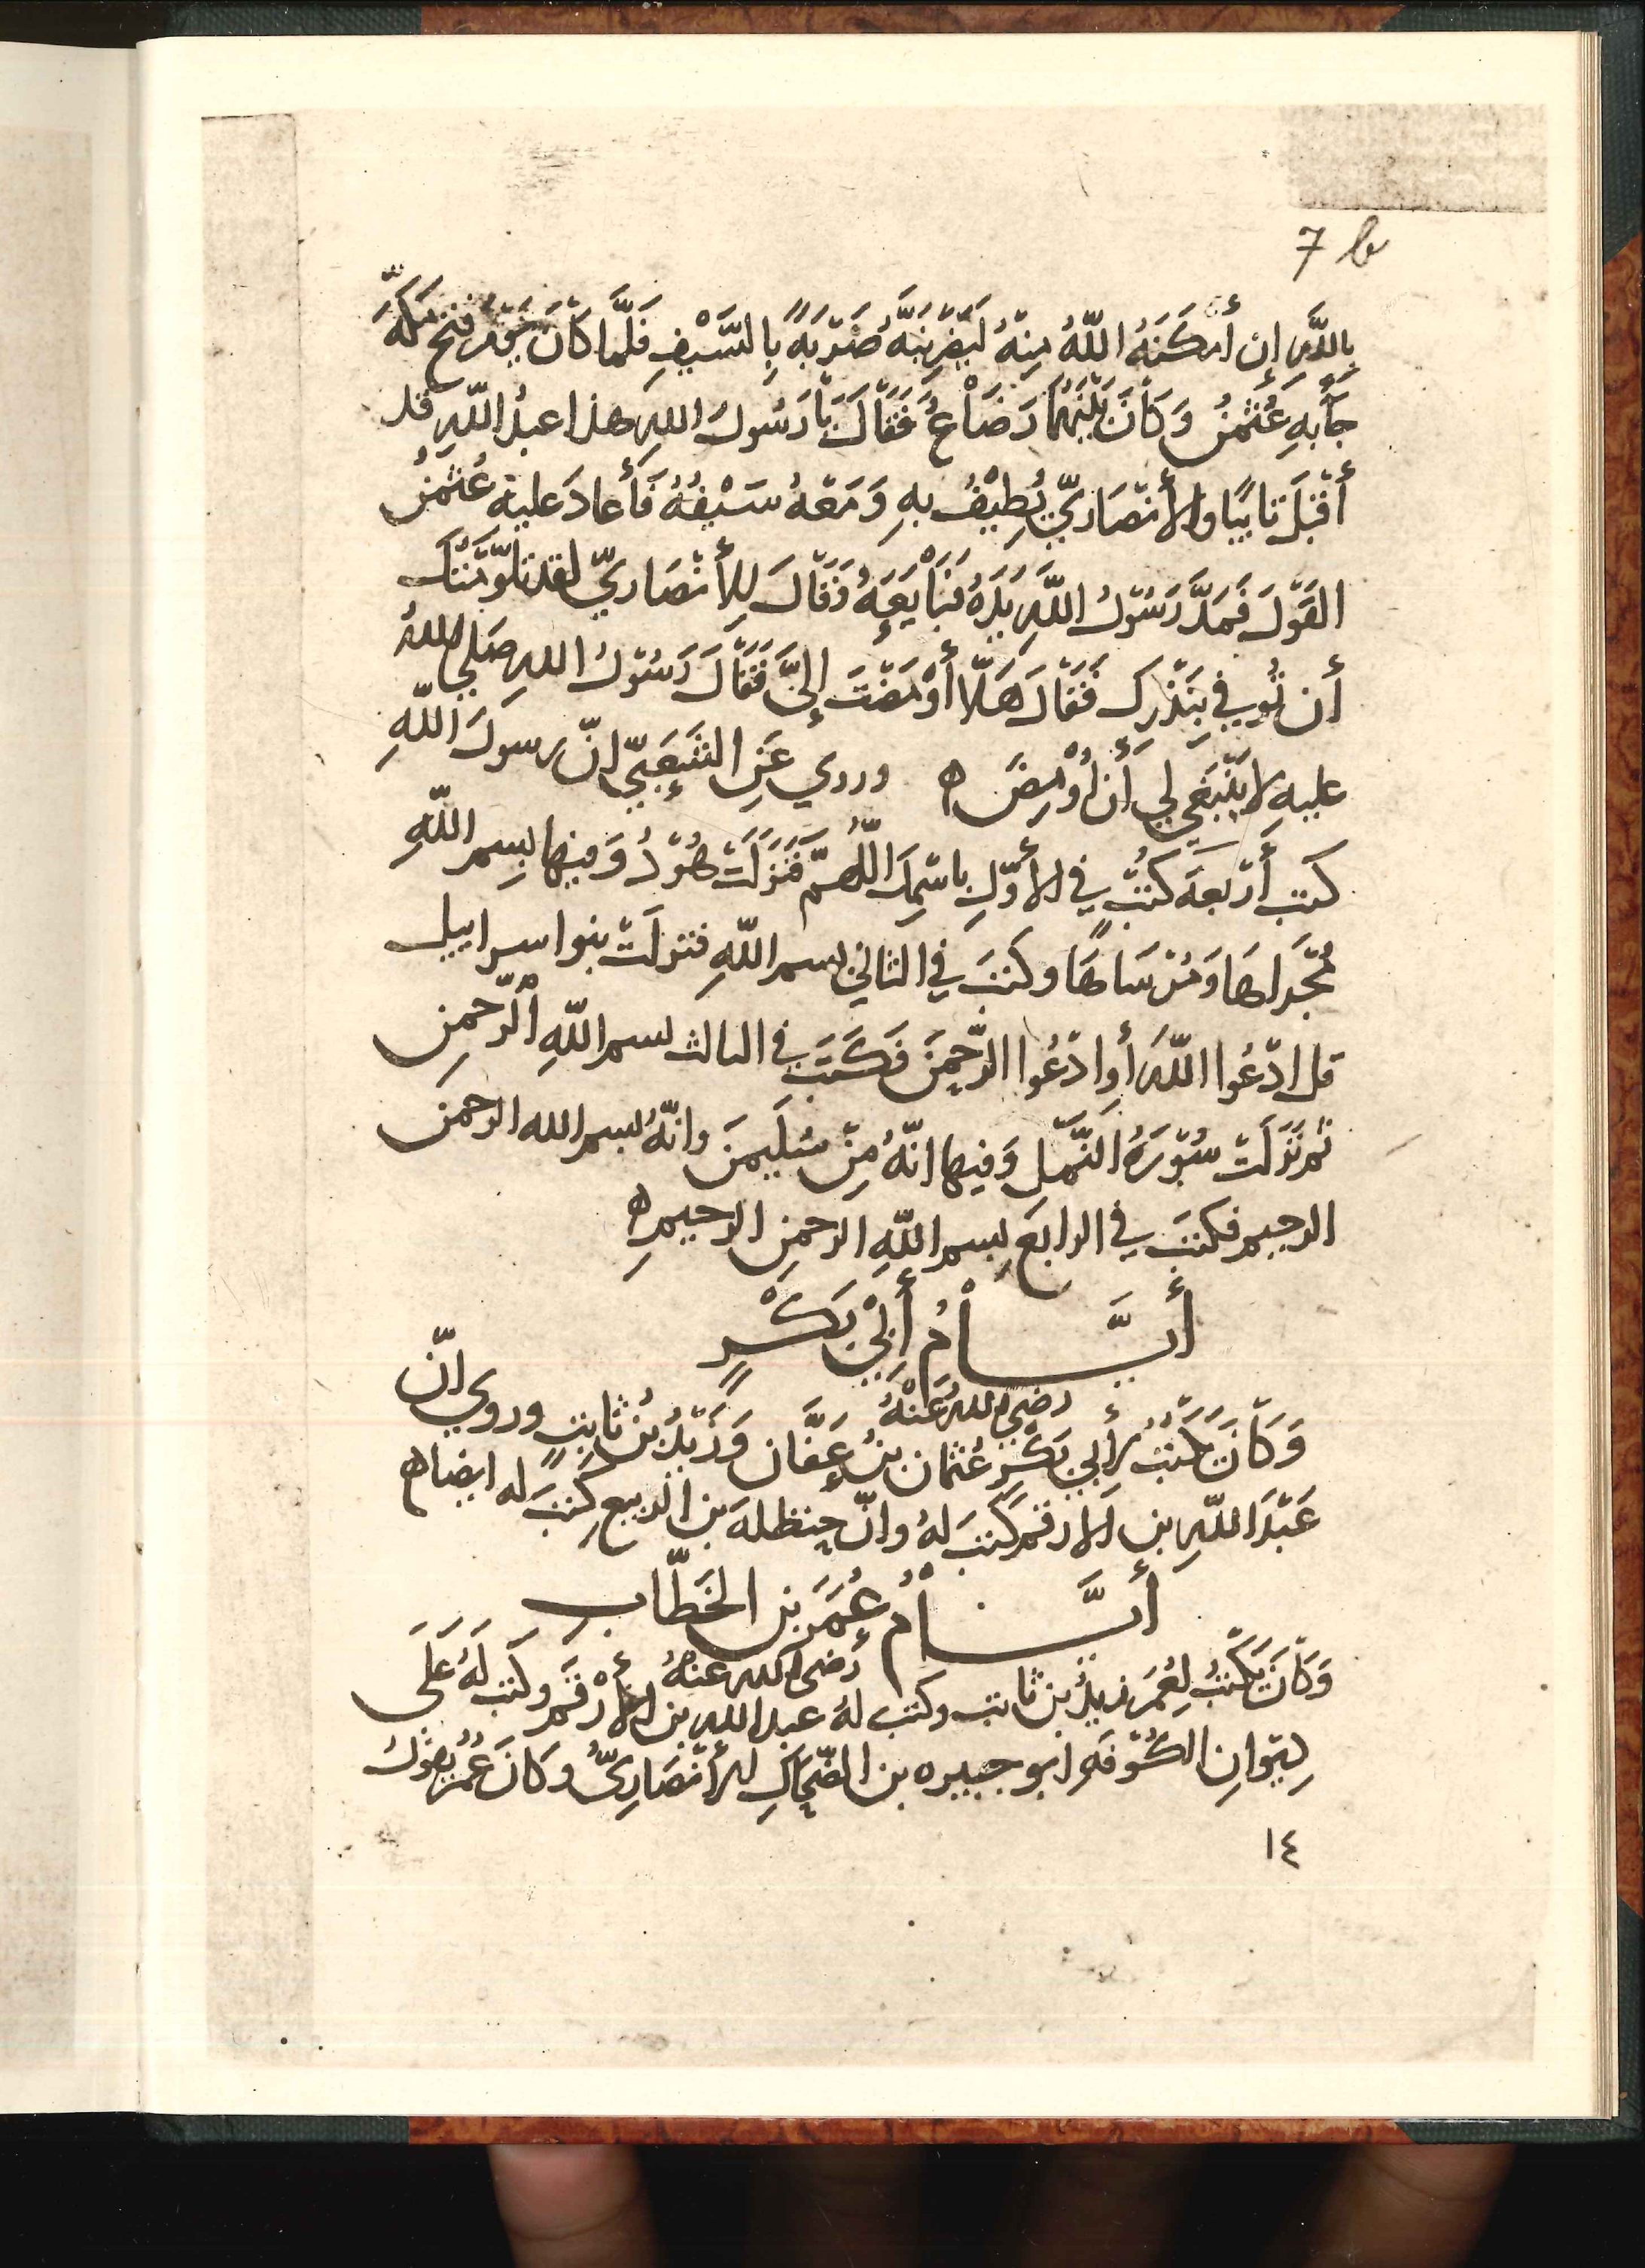 7 b
بِاللَّهِ إن أَمْكَنَهُ اللّهُ مِنْهُ لَيَضْرِبَنَّهُ ضَرْبَةً بِالسَّيْفِ فَلَمَّا كَانَ يَوْمُ فتح مَكَّةَ
جَآبِهِ عُثمنُ وَكَانَ بَيْنَهُمَا رَضَاعٌ فَقَالَ يَا رَسُولَ اللهِ هذا عبدُ اللّهِ قد
أَقْبَلَ تَايبًا والأَنْصَارِيّ يُطِيْفُ بِهِ وَمَعَهُ سَيْفُهُ فَأَعادَ عليه عُثمنُ
القَوْلَ فَمَدَّ رَسُوْلُ اللَّهِ يَدَهُ فَبَايَعَهُ وَقَالَ لِلأَنْصَارِيّ لقد تلوَّمْتُكَ
أن تُوفي بِنَذْرِكَ فَقَالَ هَلّا أَوْمَضْتَ إِليَّ فَقَالَ رَسُوْلُ اللهِ صَلى اللهُ
عليهِ لا يَنْبَغي لي أَن أُوْمِضَ ه وروي عَنِ الشَّعِبيّ انّ رسولَ اللّهِ
كتب أَرْبعَةَ كتُبٍ في الأَوّلِ باسْمِكَ اللّهُمّ فَنَزلَتْ هُوْدُ وَفيها بِسم اللّهِ
مُجْراهَا وَمُرْسَاهَا وكَتبَ في الثاني بسم اللّهِ فنزلَتْ بنوا سراييل
قل ادْعُوا اللّهَ أَوِ ادْعُوا الرّحمنَ فكَتَبَ في الثالث بسم اللّهِ الرّحمنِ
ثم نَزلَتْ سُوْرَةُ النَّمْلِ وَفيها انّهُ مِنْ سُلَيمنَ وانّهُ بسم الله الرحمن
الرحيم فكتبَ في الرابعِ بِسم اللّهِ الرحمنِ الرحيمِ ه
أَيَّـــامُ أَبي بَكْرٍ
رضي الله عَنْهُ
وَكَانَ يكتُبُ لأَبي بَكْرٍ عُثمان بنُ عَفَّان وَزَيْدُ بْنُ ثَابتٍ وروي انّ
عَبْدَ اللّهِ بن الارقم كتبَ لهُ وانّ حنظلهَ بن الربيع كتبَ له ايضا ه
أَيَّـــامُ عُمَرَ بن الخَطّابِ
رضى الله عنهُ
وَكَانَ يكتُبُ لِعُمَرَ زيدُ بن ثابت وكتب لهُ عبد الله بن الأَرْقم وكتب لَهُ عَلَى
دِيوانِ الكُوْفَةِ ابو جبيره بن الضّحاكِ الأَنْصَارِيُّ وكَانَ عُمَرُ يقولُ
١٤